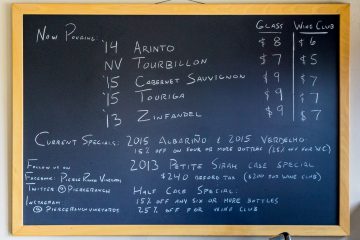 Now Pouring: Glass Wine Club
'14 Arinto $8 $6
NV Tourbillon $7 $5
'15 Cabernet Sauvignon $9 $7
'15 Touriga $9 $7
'13 Zinfandel $9 $7
Current Specials: 2015 Albariño & 2015 Verdelho
15% off on four or more bottles (25% off for WC)
Follow us on 2013 Petite Sirah case special
Facebook: Pierce Ranch Vineyards $240 before tax ($200 for wine club)
Twitter @PierceRanch Half Case Special:
Instagram 15% off any six or more bottles
@PierceRanchVineyards 25% off for wine club